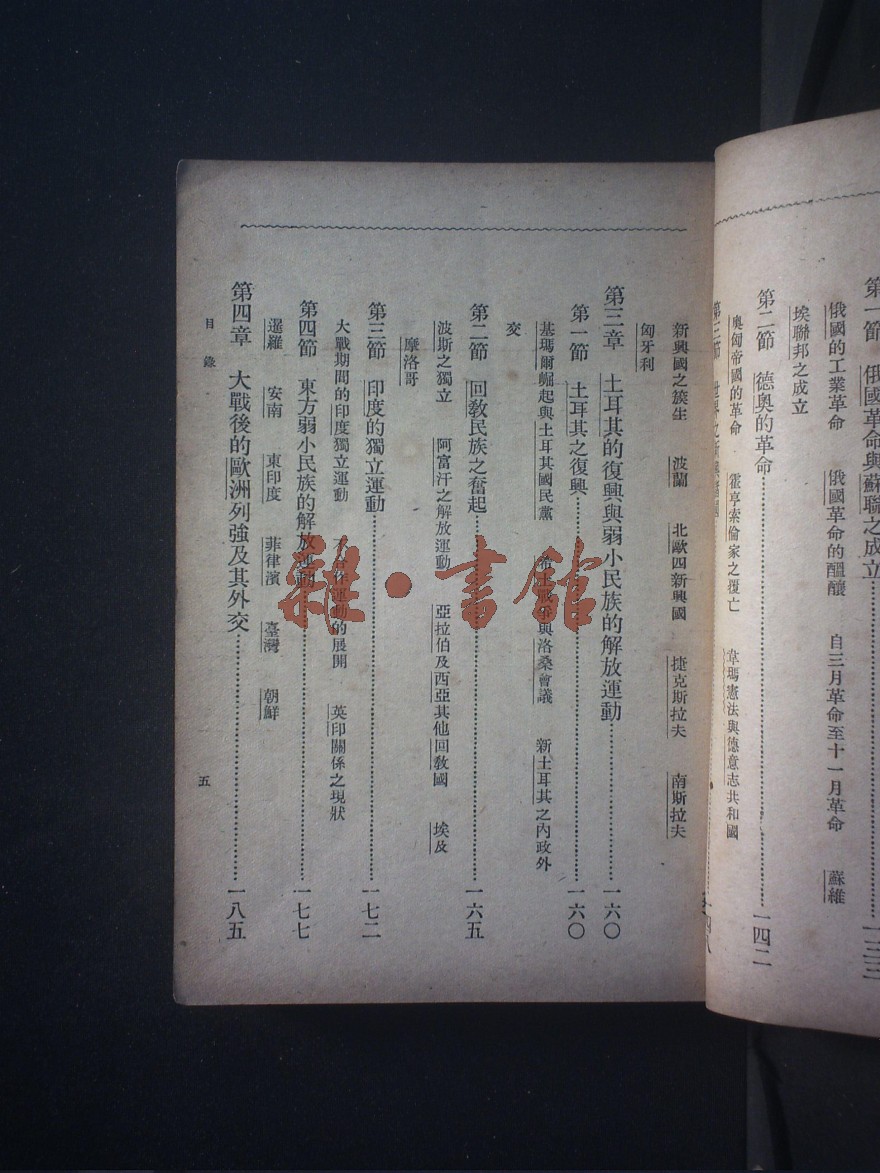 第一節 俄國革命與蘇聯之成立……一三三
俄國的工業革命 俄國革命的醞釀 自三月革命至十一月革命 蘇維
埃聯邦之成立
第二節 德奧的革命……一四二
奧匈帝國的革命 霍亨索倫家之覆亡 韋瑪憲法與德意志共和國
第三節 世界之新興諸國……一四八
新興國之簇生 波蘭 北歐四新興國 捷克斯拉夫 南斯拉夫
匈牙利
第三章 土耳其的復興與弱小民族的解放運動……一六〇
第一節 土耳其之復興……一六〇
基瑪爾崛起與土耳其國民黨 希土戰爭與洛桑會議 新土耳其之內政外
交
第二節 回教民族之奮起……一六五
波斯之獨立 阿富汗之解放運動 亞拉伯及西亞其他回教國 埃及
摩洛哥
第三節 印度的獨立運動……一七二
大戰期間的印度獨立運動 不合作運動的展開 英印關係之現狀
第四節 東方弱小民族的解放運動……一七七
暹羅 安南 東印度 菲律濱 臺灣 朝鮮
第四章 大戰後的歐洲列強及其外交……一八五
目錄 五
雜·書館